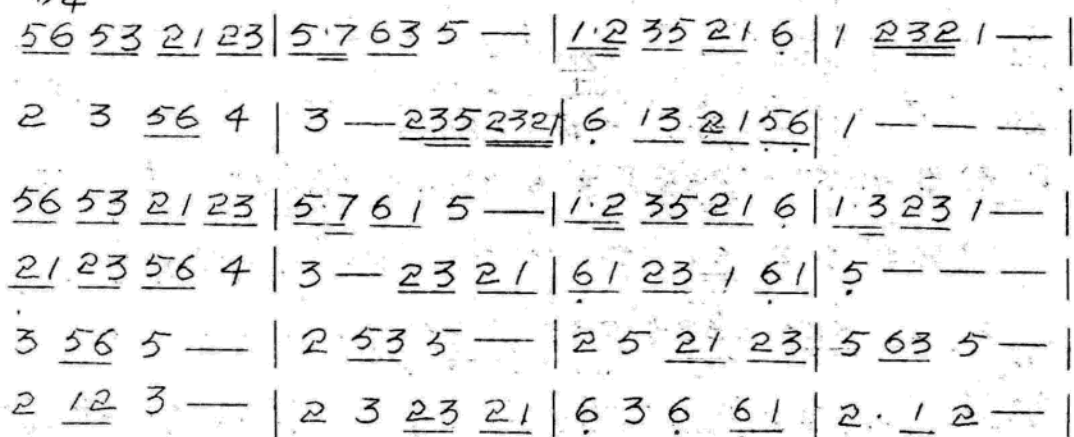 56 53 21 23 | 5·7 63 5 — | 1·2 35 21 6̣ | 1 232 1 — |
2 3 56 4 | 3 — 235 2321 | 6̣ 13 21 5̣6̣ | 1 — — — |
56 53 21 23 | 5·7 61 5 — | 1·2 35 21 6̣ | 1·3 23 1 — |
21 23 56 4 | 3 — 23 21 | 6̣1 23 1 6̣1 | 5̣ — — — |
3 56 5 — | 2 53 5 — | 2 5 21 23 | 5 63 5 — |
2 12 3 — | 2 3 23 21 | 6̣ 3 6̣ 61 | 2· 1 2 — |